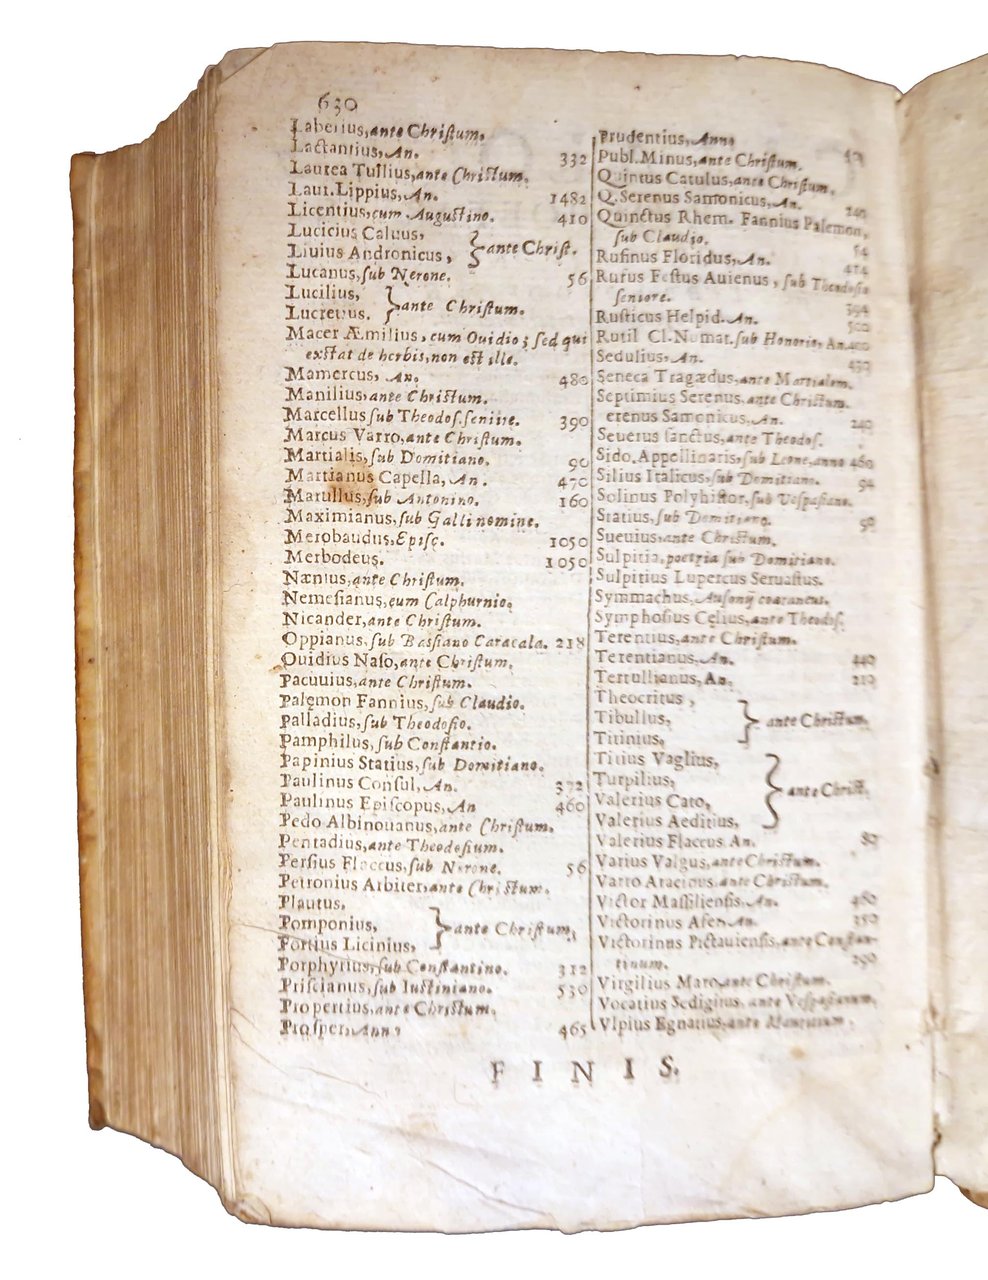 630
Laberius, ante Chriſtum.
Lactantius, An. 332
Laurea Tullius, ante Chriſtum.
Laui. Lippius, An. 1482
Licentius, cum Auguſtino. 410
Lucicius Caluus,
Liuius Andronicus, } ante Chriſt.
Lucanus, ſub Nerone. 56
Lucilius,
Lucretius. } ante Chriſtum.
Macer Æmilius, cum Ouidio; ſed qui
exſtat de herbis, non eſt ille.
Mamercus, An. 480
Manilius, ante Chriſtum.
Marcellus ſub Theodoſ. 390
Marcus Varro, ante Chriſtum.
Martialis, ſub Domitiano. 90
Martianus Capella, An. 470
Marullus, ſub Antonino. 160
Maximianus, ſub Galli nomine.
Merobaudus, Epiſc. 1050
Merbodeus. 1050
Nænius, ante Chriſtum.
Nemeſianus, cum Calphurnio.
Nicander, ante Chriſtum.
Oppianus, ſub Baſsiano Caracala. 218
Ouidius Naſo, ante Chriſtum.
Pacuuius, ante Chriſtum.
Palęmon Fannius, ſub Claudio.
Palladius, ſub Theodoſio.
Pamphilus, ſub Conſtantio.
Papinius Statius, ſub Domitiano.
Paulinus Conſul, An. 372
Paulinus Epiſcopus, An 460
Pedo Albinouanus, ante Chriſtum.
Pentadius, ante Theodoſium.
Perſius Flaccus, ſub Nerone. 56
Petronius Arbiter, ante Chriſtum.
Plautus,
Pomponius,
Portius Licinius, } ante Chriſtum,
Porphyrius, ſub Conſtantino. 312
Priſcianus, ſub Iuſtiniano. 530
Propertius, ante Chriſtum.
Proſper, Anno 465
Prudentius, Anno
Publ. Minus, ante Chriſtum.
Quintus Catulus, ante Chriſtum.
Q. Serenus Samonicus, An. 240
Quinctus Rhem. Fannius Palemon,
ſub Claudio. 54
Rufinus Floridus, An. 414
Rufus Feſtus Auienus, ſub Theodoſio
ſeniore. 394
Ruſticus Helpid. An. 500
Rutil Cl. Numat. ſub Honorio, An. 400
Sedulius, An. 430
Seneca Tragædus, ante Martialem.
Septimius Serenus, ante Chriſtum.
erenus Samonicus, An. 240
Seuerus ſanctus, ante Theodoſ.
Sido. Appellinaris, ſub Leone, anno 460
Silius Italicus, ſub Domitiano. 94
Solinus Polyhiſtor, ſub Veſpaſiano.
Statius, ſub Domitiano. 90
Sueuius, ante Chriſtum.
Sulpitia, poetria ſub Domitiano.
Sulpitius Lupercus Seruaſtus.
Symmachus, Auſonij coætaneus.
Symphoſius Cęlius, ante Theodoſ.
Terentius, ante Chriſtum.
Terentianus, An. 440
Tertullianus, An. 210
Theocritus,
Tibullus,
Titinius, } ante Chriſtum,
Titius Vaglius,
Turpilius,
Valerius Cato,
Valerius Aeditius, } ante Chriſt.
Valerius Flaccus An. 80
Varius Valgus, ante Chriſtum.
Varro Atacinus ante Chriſtum.
Victor Maſſilienſis, An. 460
Victorinus Afer, An. 350
Victorinus Pictauienſis, ante Conſtan-
tinum. 290
Virgilius Maro ante Chriſtum.
Vocatius Sedigitus, ante Veſpaſianum.
Vlpius Egnatius, ante
FINIS.